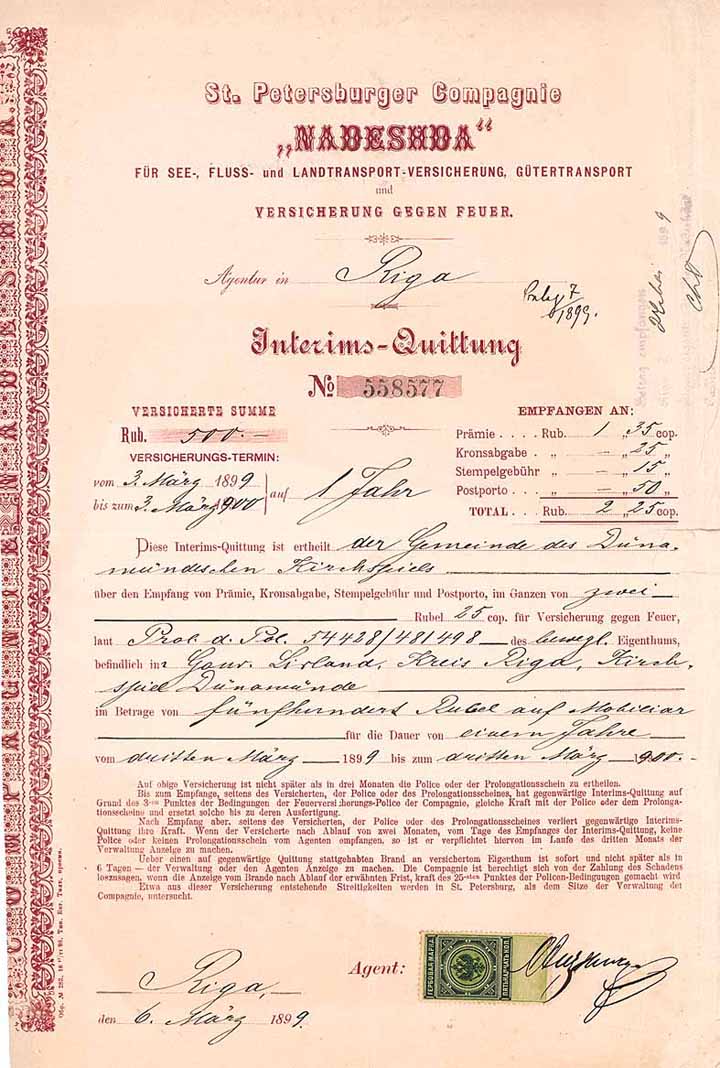 St. Petersburger Compagnie
„NADESHDA“
FÜR SEE-, FLUSS- und LANDTRANSPORT-VERSICHERUNG, GÜTERTRANSPORT
und
VERSICHERUNG GEGEN FEUER.
Agentur in Riga
7/1899.
Interims-Quittung
No 558577
VERSICHERTE SUMME
Rub. 500.-
VERSICHERUNGS-TERMIN:
vom 3. März 1899
bis zum 3. März 1900
auf 1 Jahr
EMPFANGEN AN:
Prämie . . . . Rub. 1 „ 35 cop.
Kronsabgabe . „ — „ 25 „
Stempelgebühr „ — „ 15 „
Postporto . . . „ — „ 50 „
TOTAL . . Rub. 2 25 cop.
Diese Interims-Quittung ist ertheilt der Gemeinde des Düna-
mündeschen Kirchspiels
über den Empfang von Prämie, Kronsabgabe, Stempelgebühr und Postporto, im Ganzen von zwei
Rubel 25 cop. für Versicherung gegen Feuer,
laut Prol. d. Pol. 54428/481498 des bewegl. Eigenthums,
befindlich in: Gouv. Livland, Kreis Riga, Kirch-
spiel Dünamünde
im Betrage von fünfhundert Rubel auf Mobiliar
für die Dauer von einem Jahre
vom dritten März 1899 bis zum dritten März 1900.-
Auf obige Versicherung ist nicht später als in drei Monaten die Police oder der Prolongationsschein zu ertheilen.
Bis zum Empfange, seitens des Versicherten, der Police oder des Prolongationsscheines, hat gegenwärtige Interims-Quittung auf
Grund des 3-en Punktes der Bedingungen der Feuerversicherungs-Police der Compagnie, gleiche Kraft mit der Police oder dem Prolonga-
tionsscheine und ersetzt solche bis zu deren Ausfertigung.
Nach Empfang aber, seitens des Versicherten, der Police oder des Prolongationsscheines verliert gegenwärtige Interims-
Quittung ihre Kraft. Wenn der Versicherte nach Ablauf von zwei Monaten, vom Tage des Empfanges der Interims-Quittung, keine
Police oder keinen Prolongationsschein vom Agenten empfangen, so ist er verpflichtet hiervon im Laufe des dritten Monats der
Verwaltung Anzeige zu machen.
Ueber einen auf gegenwärtige Quittung stattgehabten Brand an versichertem Eigenthum ist sofort und nicht später als in
6 Tagen – der Verwaltung oder den Agenten Anzeige zu machen. Die Compagnie ist berechtigt sich von der Zahlung des Schadens
loszusagen, wenn die Anzeige vom Brande nach Ablauf der erwähnten Frist, kraft des 25-sten Punktes der Policen-Bedingungen gemacht wird
Etwa aus dieser Versicherung entstehende Streitigkeiten werden in St. Petersburg, als dem Sitze der Verwaltung der
Compagnie, untersucht.
Riga,
den 6. März 1899.
Agent:
ГЕРБОВАЯ МАРКА
ПЯТНАДЦАТЬ КОП.
COMPAGNIE NADESHDA.
Betrag empfangen